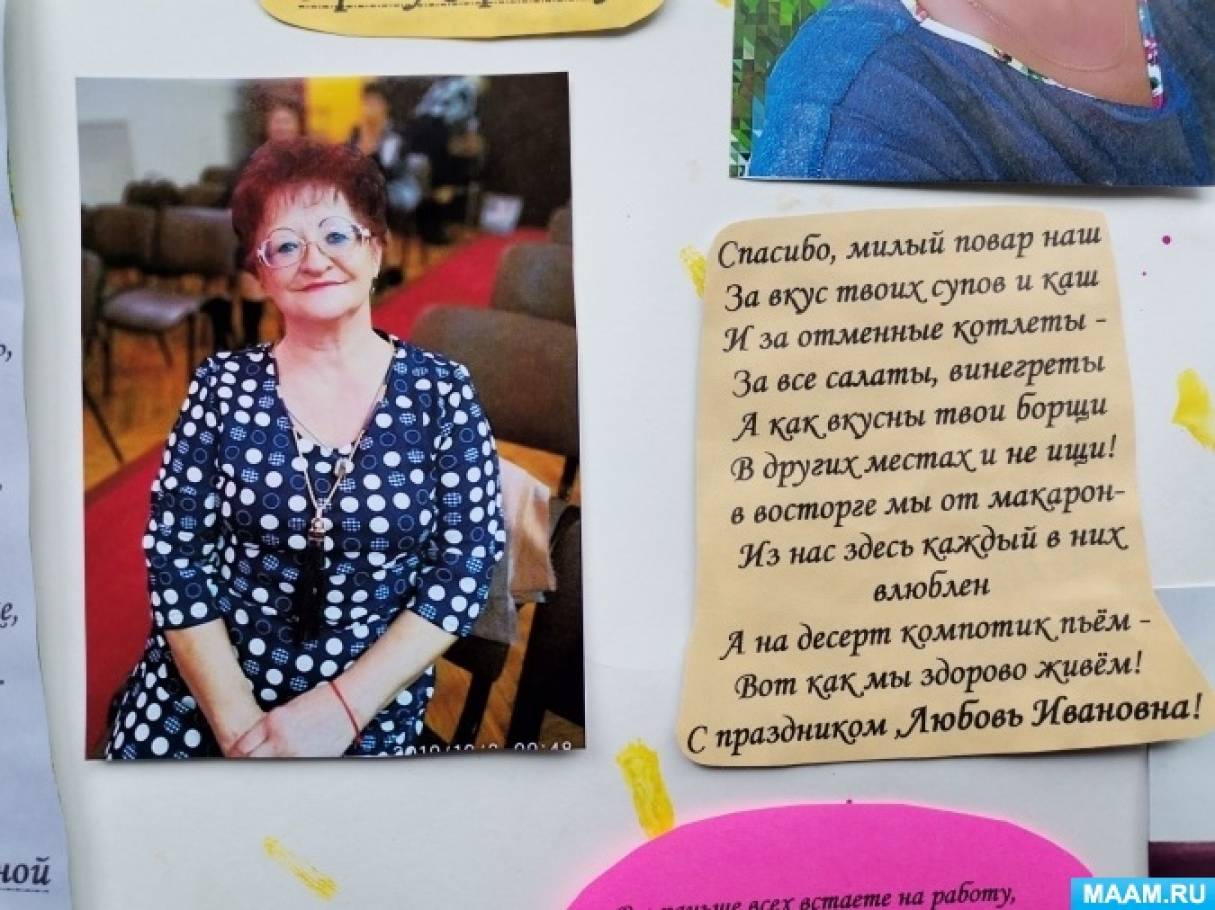 Спасибо, милый повар наш
За вкус твоих супов и каш
И за отменные котлеты -
За все салаты, винегреты
А как вкусны твои борщи
В других местах и не ищи!
в восторге мы от макарон-
Из нас здесь каждый в них
влюблен
А на десерт компотик пьём -
Вот как мы здорово живём!
С праздником ,Любовь Ивановна!
раньше всех встаете на работу,
ной
MAAM.RU